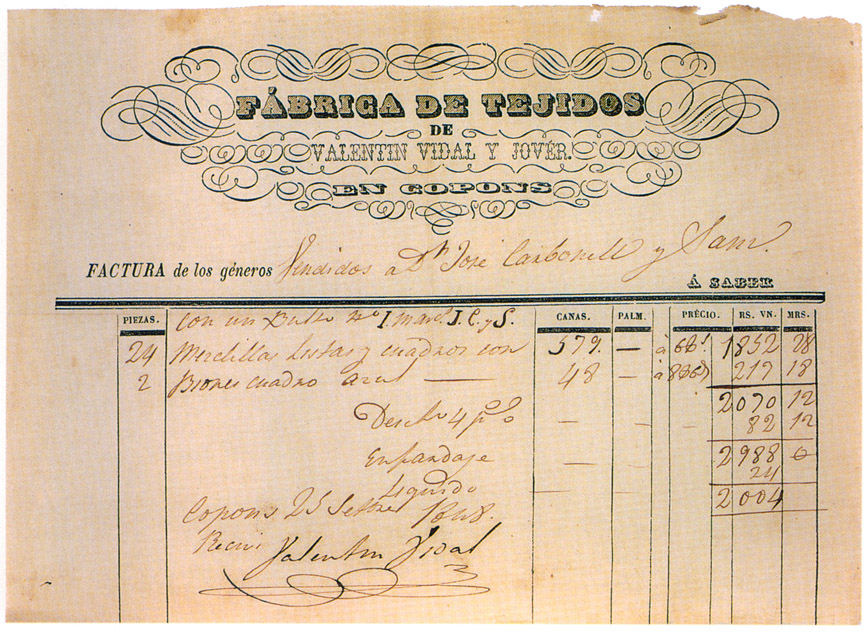 FÁBRICA DE TEJIDOS
DE
VALENTIN VIDAL Y JOVÉR.
EN COPONS
FACTURA de los géneros Vendidos a Dn José Carbonell y Sanz.
Á SABER
PIEZAS. CANAS. PALM. PRÉCIO. RS. VN. MRS.
Con un Bulto No 1. marca J. C. y S.
24 Mezclillas listas y cuadros con 579. — à 1852 28
2 cuadro azul — 48 — a 217 18
2070 12
Descto 4 p%  — — - 82 12
Enfardaje — — 2988 0
24
Liquido — — 2004
Copons 25 Setbre 1848.
Recivi Valentin Vidal